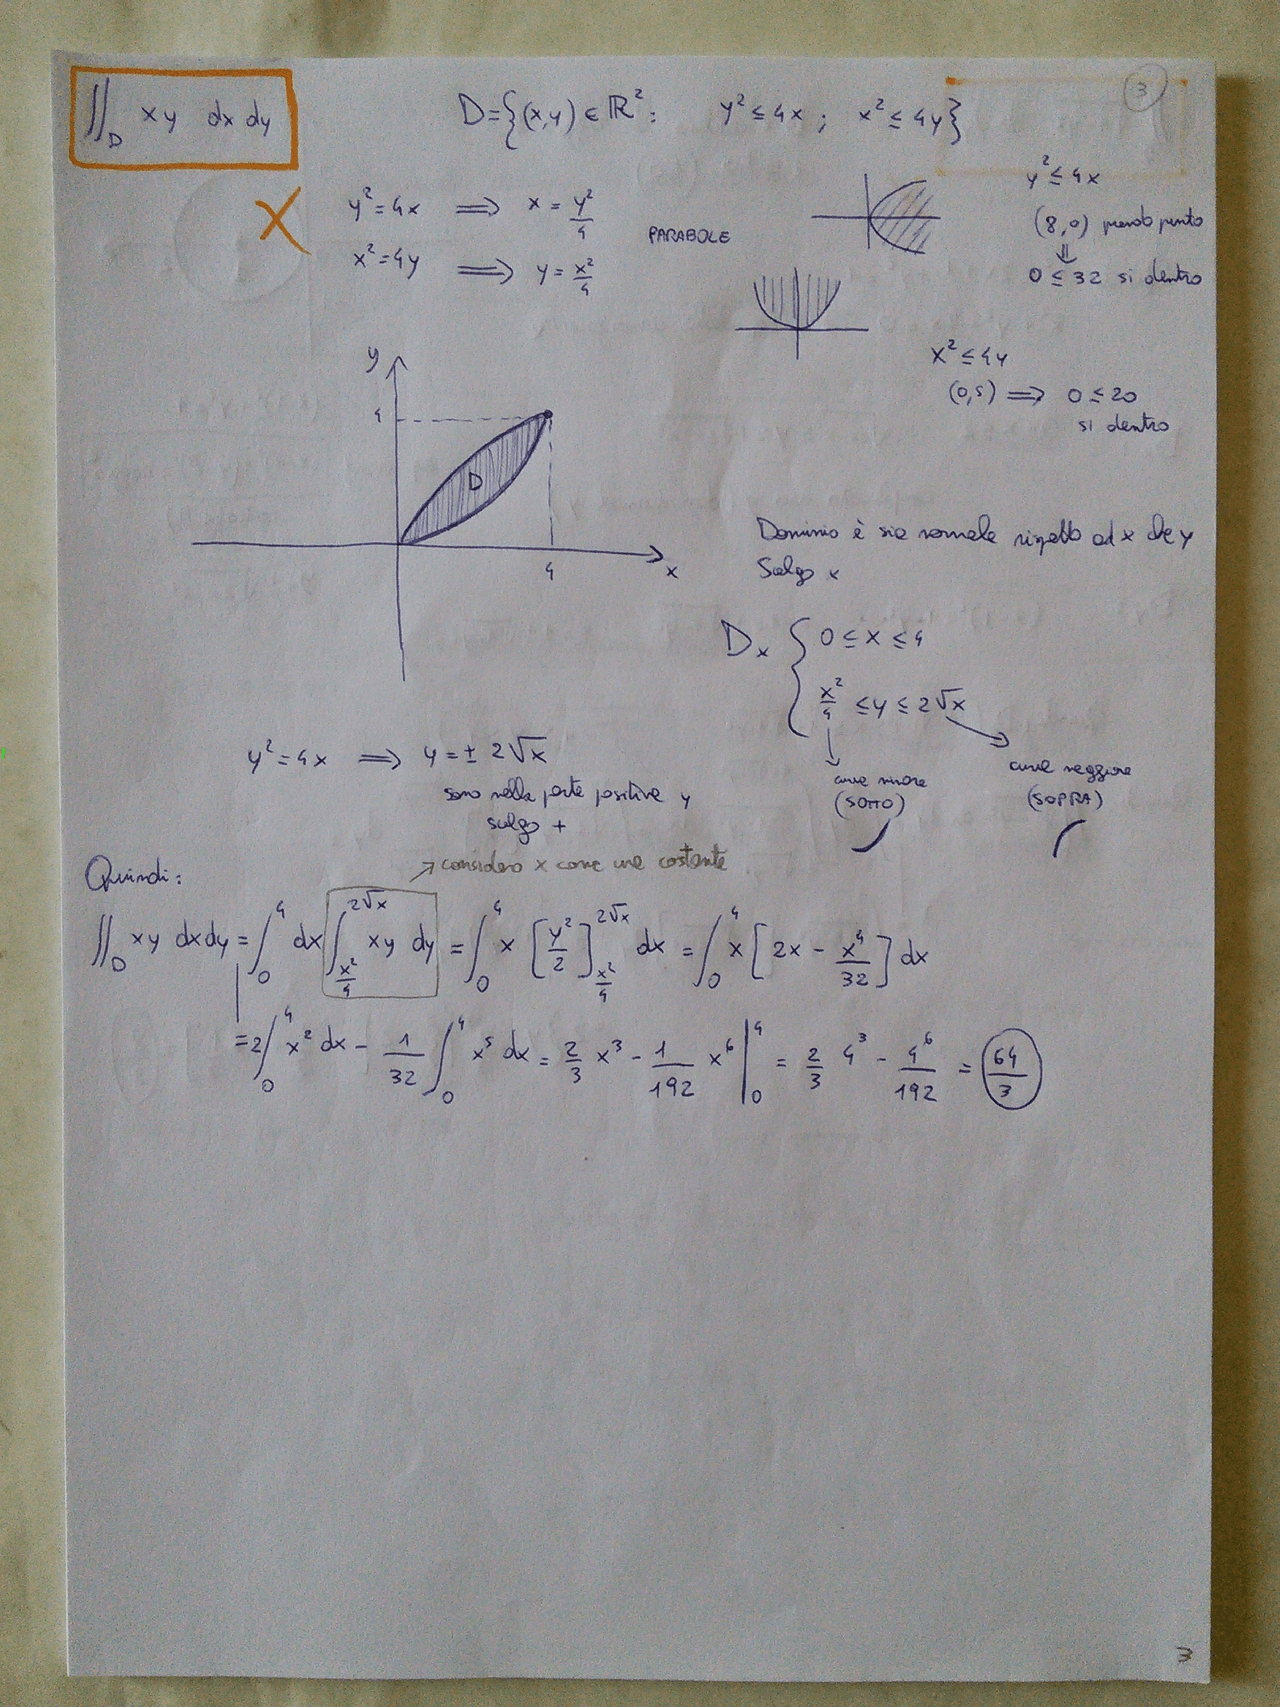 ∬_D xy dx dy    D={(x,y) ∈ ℝ²: y² ≤ 4x ; x² ≤ 4y}
3
X
y²=4x ⟹ x = y²/4
x²=4y ⟹ y = x²/4
PARABOLE
y² ≤ 4x
(8,0) prendo punto
⇓
0 ≤ 32 si dentro
x² ≤ 4y
(0,5) ⟹ 0 ≤ 20
si dentro
y
4
D
4
x
Dominio è sia normale rispetto ad x che y
Scelgo x
D_x { 0 ≤ x ≤ 4
x²/4 ≤ y ≤ 2√x
curva minore
(SOTTO)
curva maggiore
(SOPRA)
y²=4x ⟹ y = ± 2√x
sono nella parte positiva y
scelgo +
Quindi:
→ considero x come una costante
∬_D xy dx dy = ∫_0^4 dx ∫_{x²/4}^{2√x} xy dy = ∫_0^4 x [y²/2]_{x²/4}^{2√x} dx = ∫_0^4 x [2x - x⁴/32] dx
= 2∫_0^4 x² dx - 1/32 ∫_0^4 x⁵ dx = 2/3 x³ - 1/192 x⁶ |_0^4 = 2/3 4³ - 4⁶/192 = 64/3
3